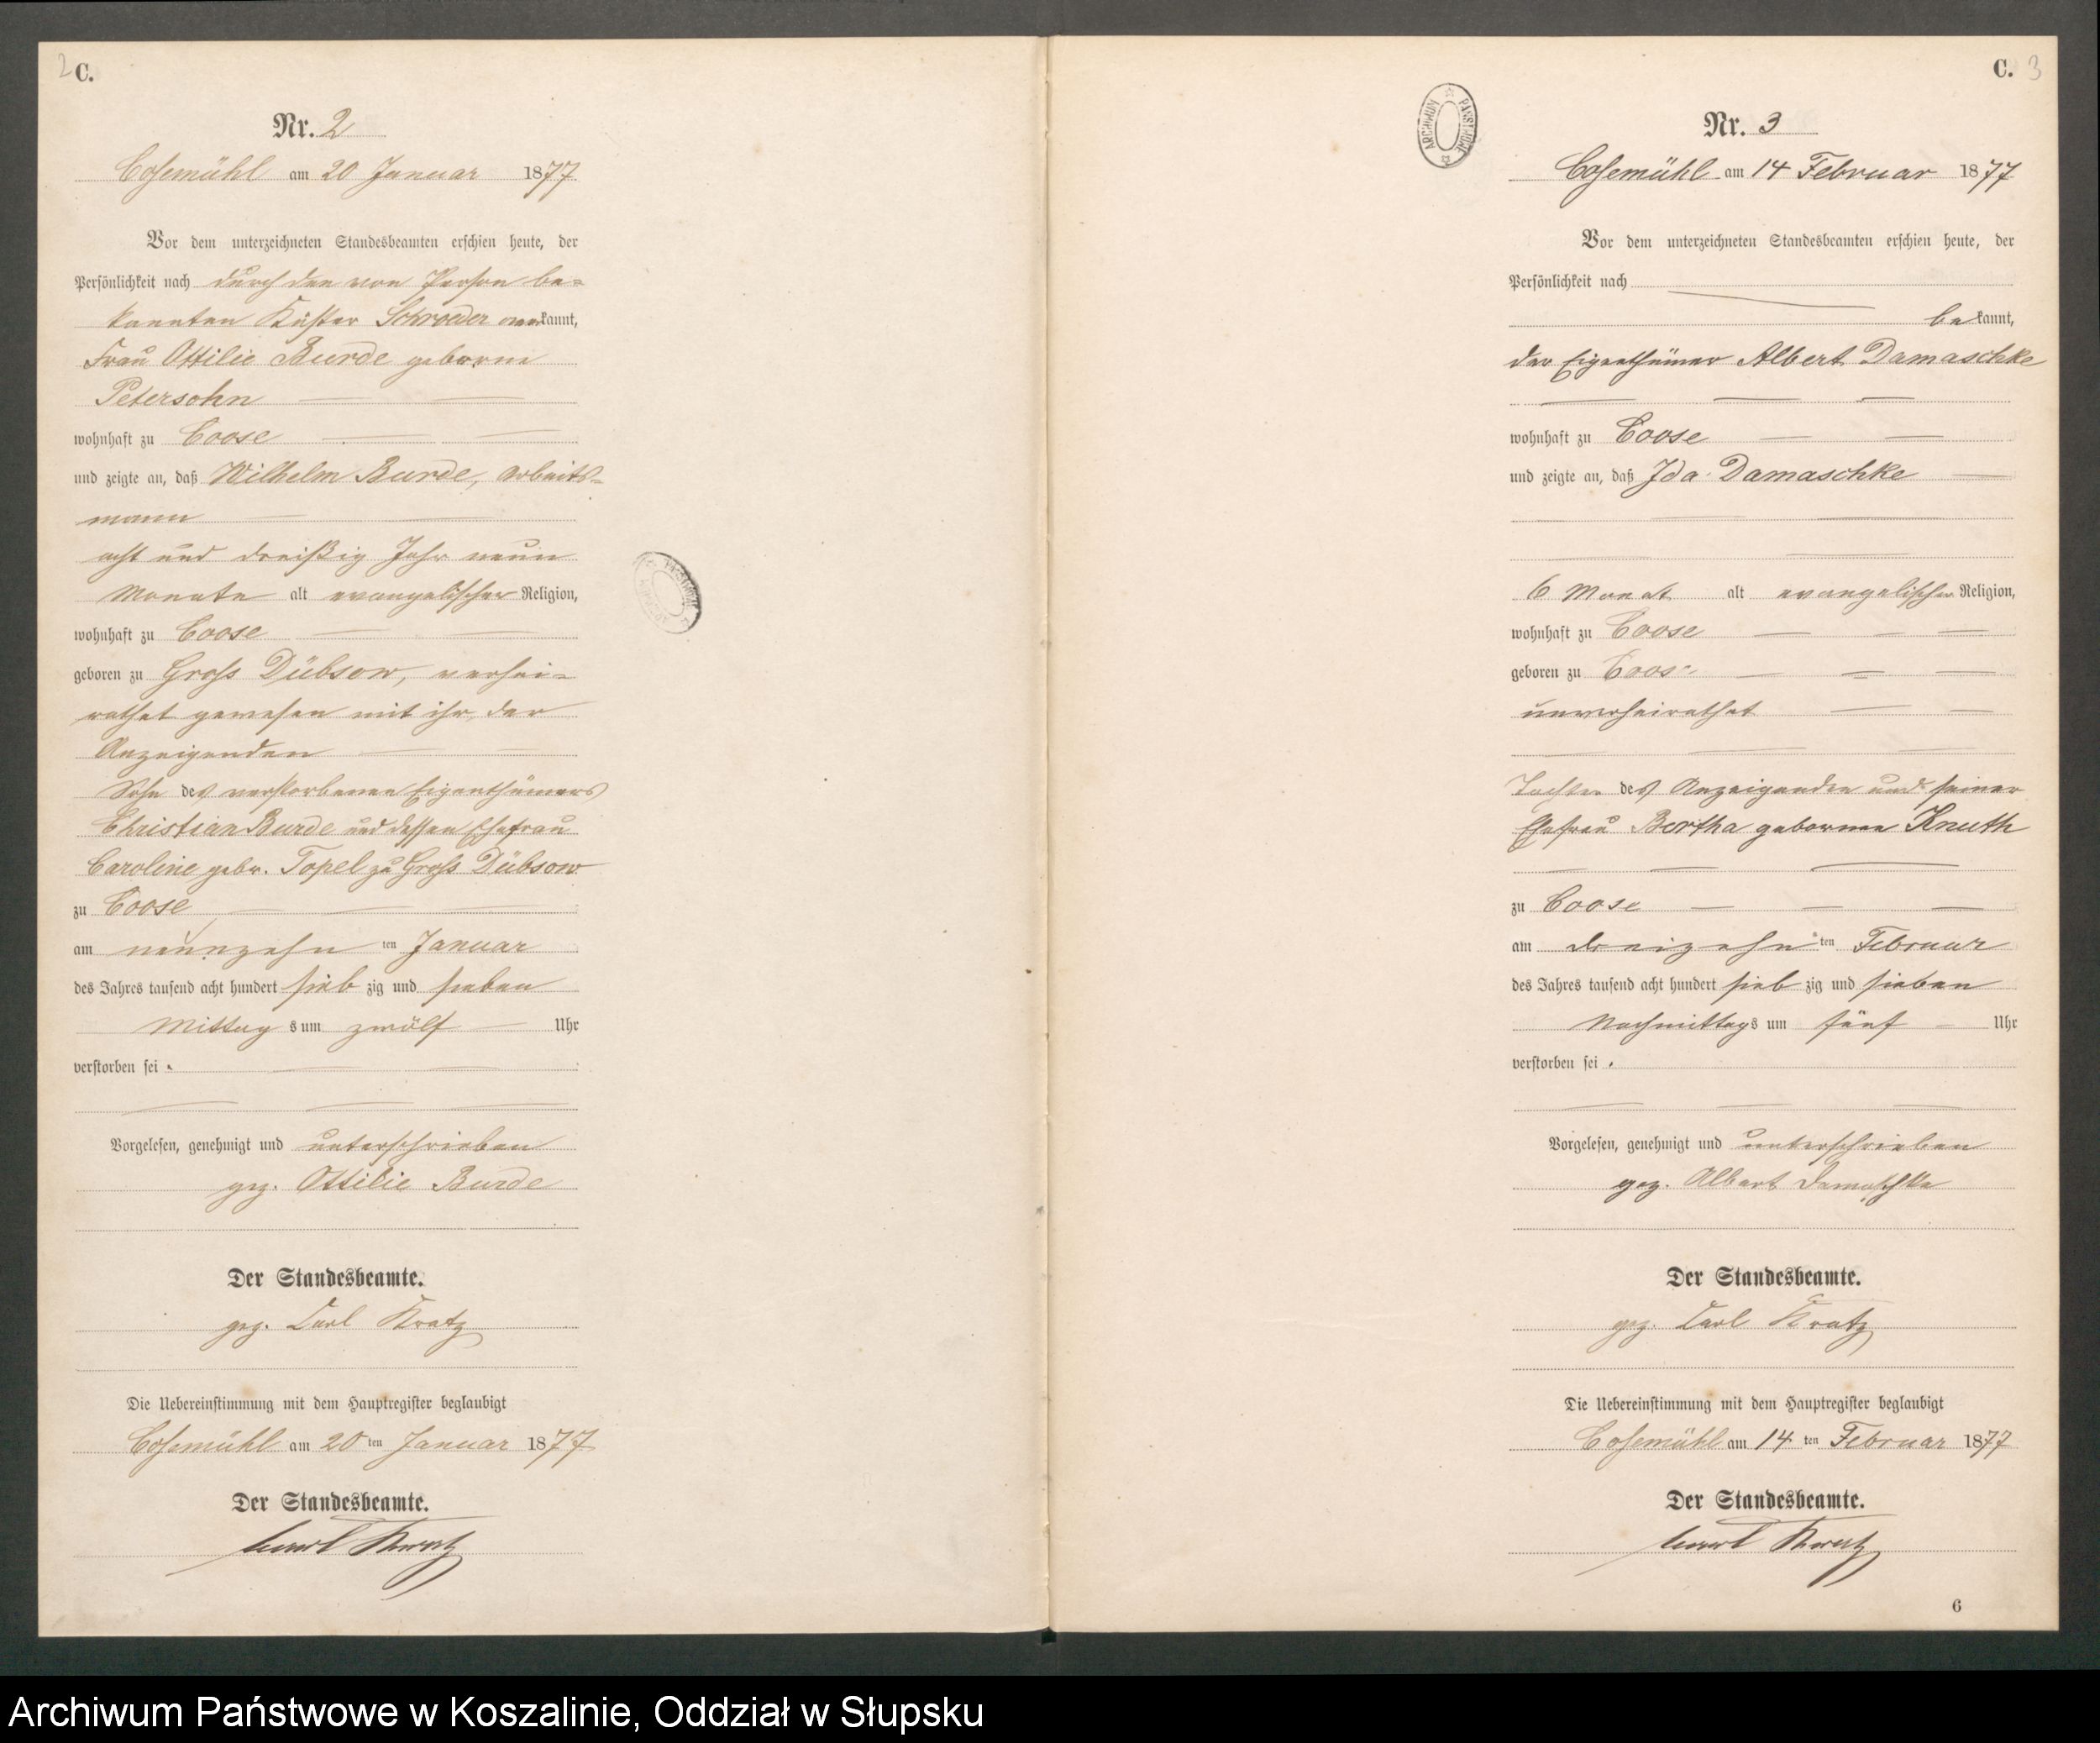 2 C.
Nr. 2
Cosemühl am 20 Januar 1877
Vor dem unterzeichneten Standesbeamten erschien heute, der
Persönlichkeit nach durch den von Person be-
kannten Küster Schroeder anerkannt,
Frau Ottilie Burde geborne
Petersohn
wohnhaft zu Coose
und zeigte an, daß Wilhelm Burde, Arbeits-
mann
acht und dreißig Jahr neun
Monate alt evangelischer Religion,
wohnhaft zu Coose
geboren zu Gross Dübsow, verhei-
rathet gewesen mit ihr, der
Anzeigenden
Sohn des verstorbenen Eigenthümers
Christian Burde und dessen Ehefrau
Caroline gebr. Topel zu Gross Dübsow
zu Coose
am neunzehn ten Januar
des Jahres tausend acht hundert sieb zig und sieben
Mittag s um zwölf Uhr
verstorben sei.
Vorgelesen, genehmigt und unterschrieben
gez. Ottilie Burde
Der Standesbeamte.
gez. Carl Kratz
Die Uebereinstimmung mit dem Hauptregister beglaubigt
Cosemühl am 20 ten Januar 1877
Der Standesbeamte.
Carl Kratz
C. 3
ARCHIWUM PAŃSTWOWE
Nr. 3
Cosemühl am 14 Februar 1877
Vor dem unterzeichneten Standesbeamten erschien heute, der
Persönlichkeit nach
bekannt,
der Eigenthümer Albert Damaschke
wohnhaft zu Coose
und zeigte an, daß Ida Damaschke
6 Monat alt evangelischer Religion,
wohnhaft zu Coose
geboren zu Coose
unverheirathet
Tochter des Anzeigenden und seiner
Ehefrau Bertha gebornen Knuth
zu Coose
am dreizehn ten Februar
des Jahres tausend acht hundert sieb zig und sieben
Nachmittags um fünf Uhr
verstorben sei.
Vorgelesen, genehmigt und unterschrieben
gez. Albert Damaschke
Der Standesbeamte.
gez. Carl Kratz
Die Uebereinstimmung mit dem Hauptregister beglaubigt
Cosemühl am 14 ten Februar 1877
Der Standesbeamte.
Carl Kratz
6
Archiwum Państwowe w Koszalinie, Oddział w Słupsku